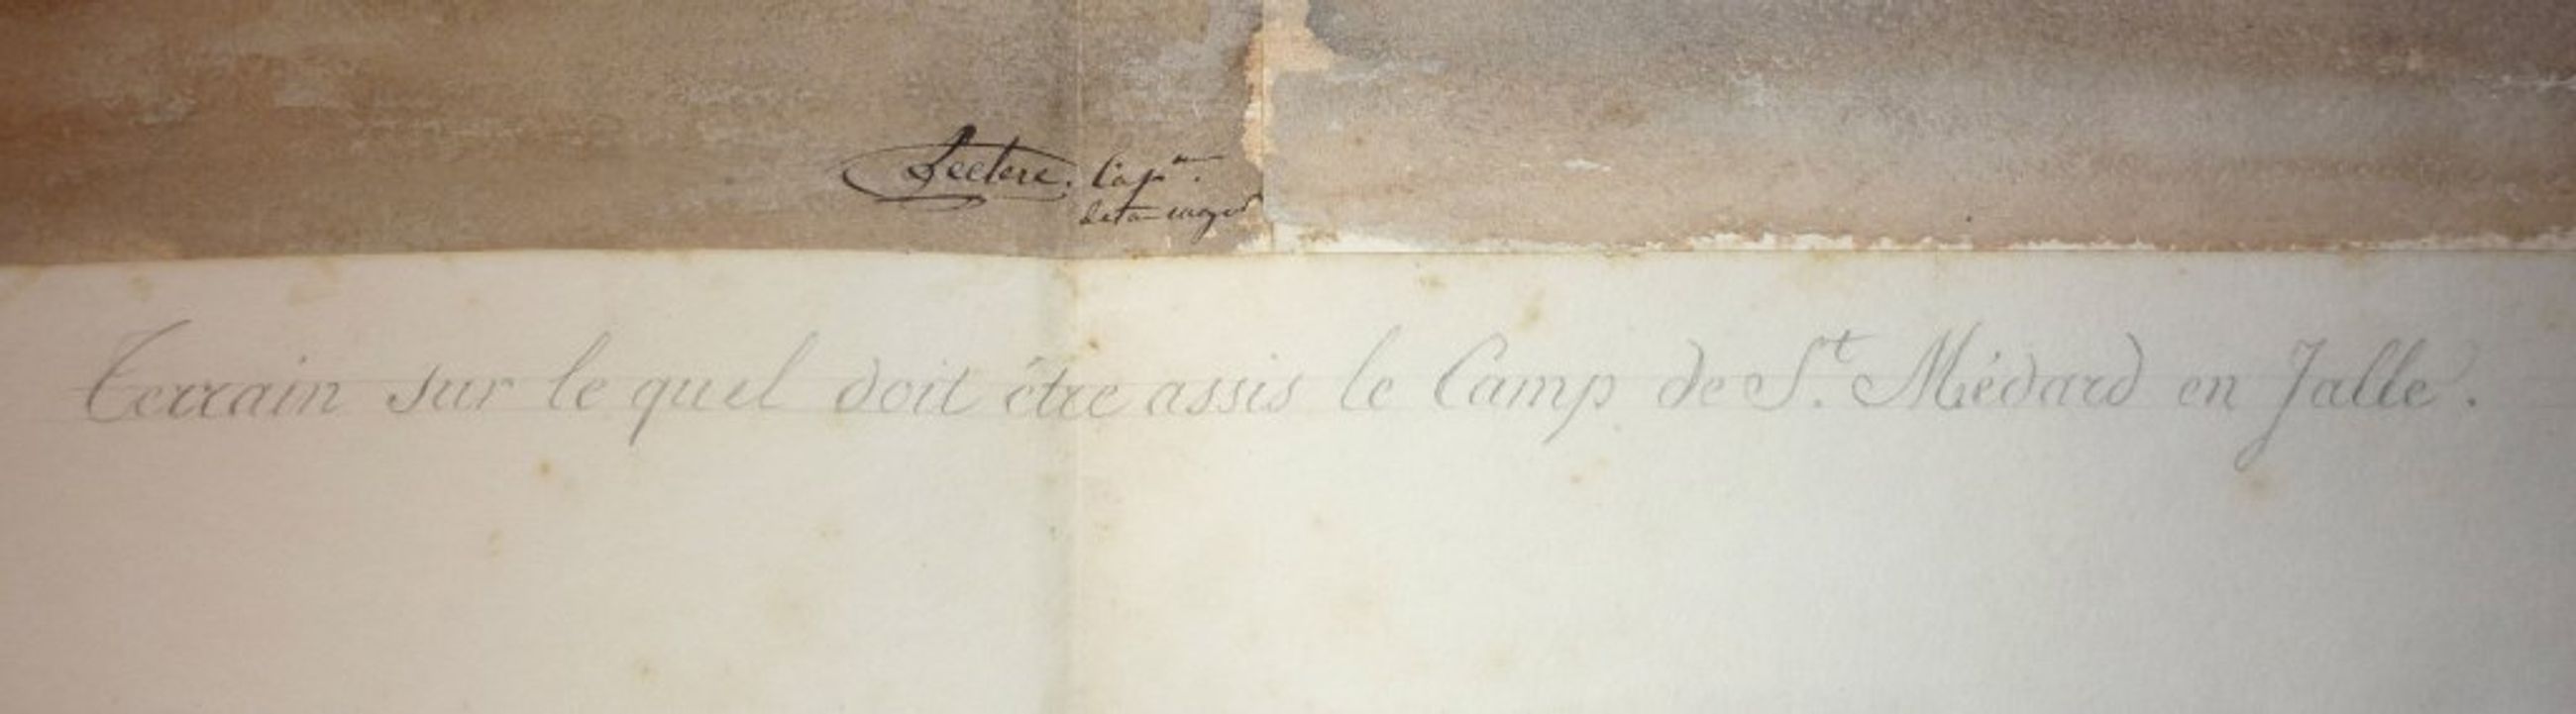 Leclerc. Cap.ne
Terrain sur le quel doit être assis le Camp de S.t Médard en Jalle.